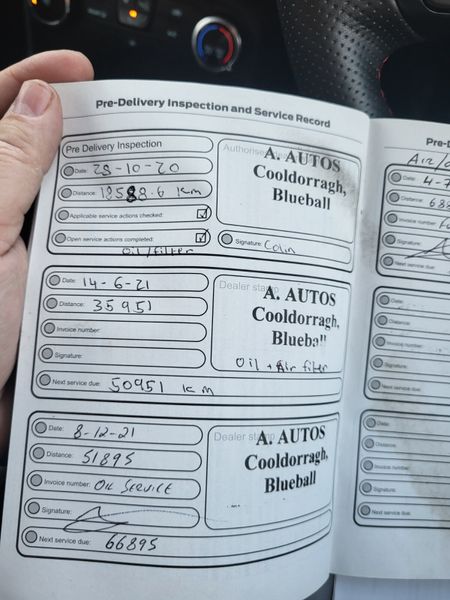 Pre-Delivery Inspection and Service Record
Pre Delivery Inspection
Date: 28-10-20
Distance: 18588.6 Km
Applicable service actions checked:
Open service actions completed:
oil/filter
A. AUTOS
Cooldorragh,
Blueball
Signature: Colin
Date: 14-6-21
Distance: 35951
Invoice number:
Signature:
Next service due: 50951 km
Dealer stamp
A. AUTOS
Cooldorragh,
Blueball
Oil + Air filter
Date: 8-12-21
Distance: 51895
Invoice number: OIL SERVICE
Signature:
Next service due: 66895
Dealer stamp
A. AUTOS
Cooldorragh,
Blueball
Date:
Distance:
Invoice number:
Signature:
Next service due:
Date:
Distance:
Invoice number:
Signature:
Next service due:
Date:
Distance:
Invoice number:
Signature:
Next service due: